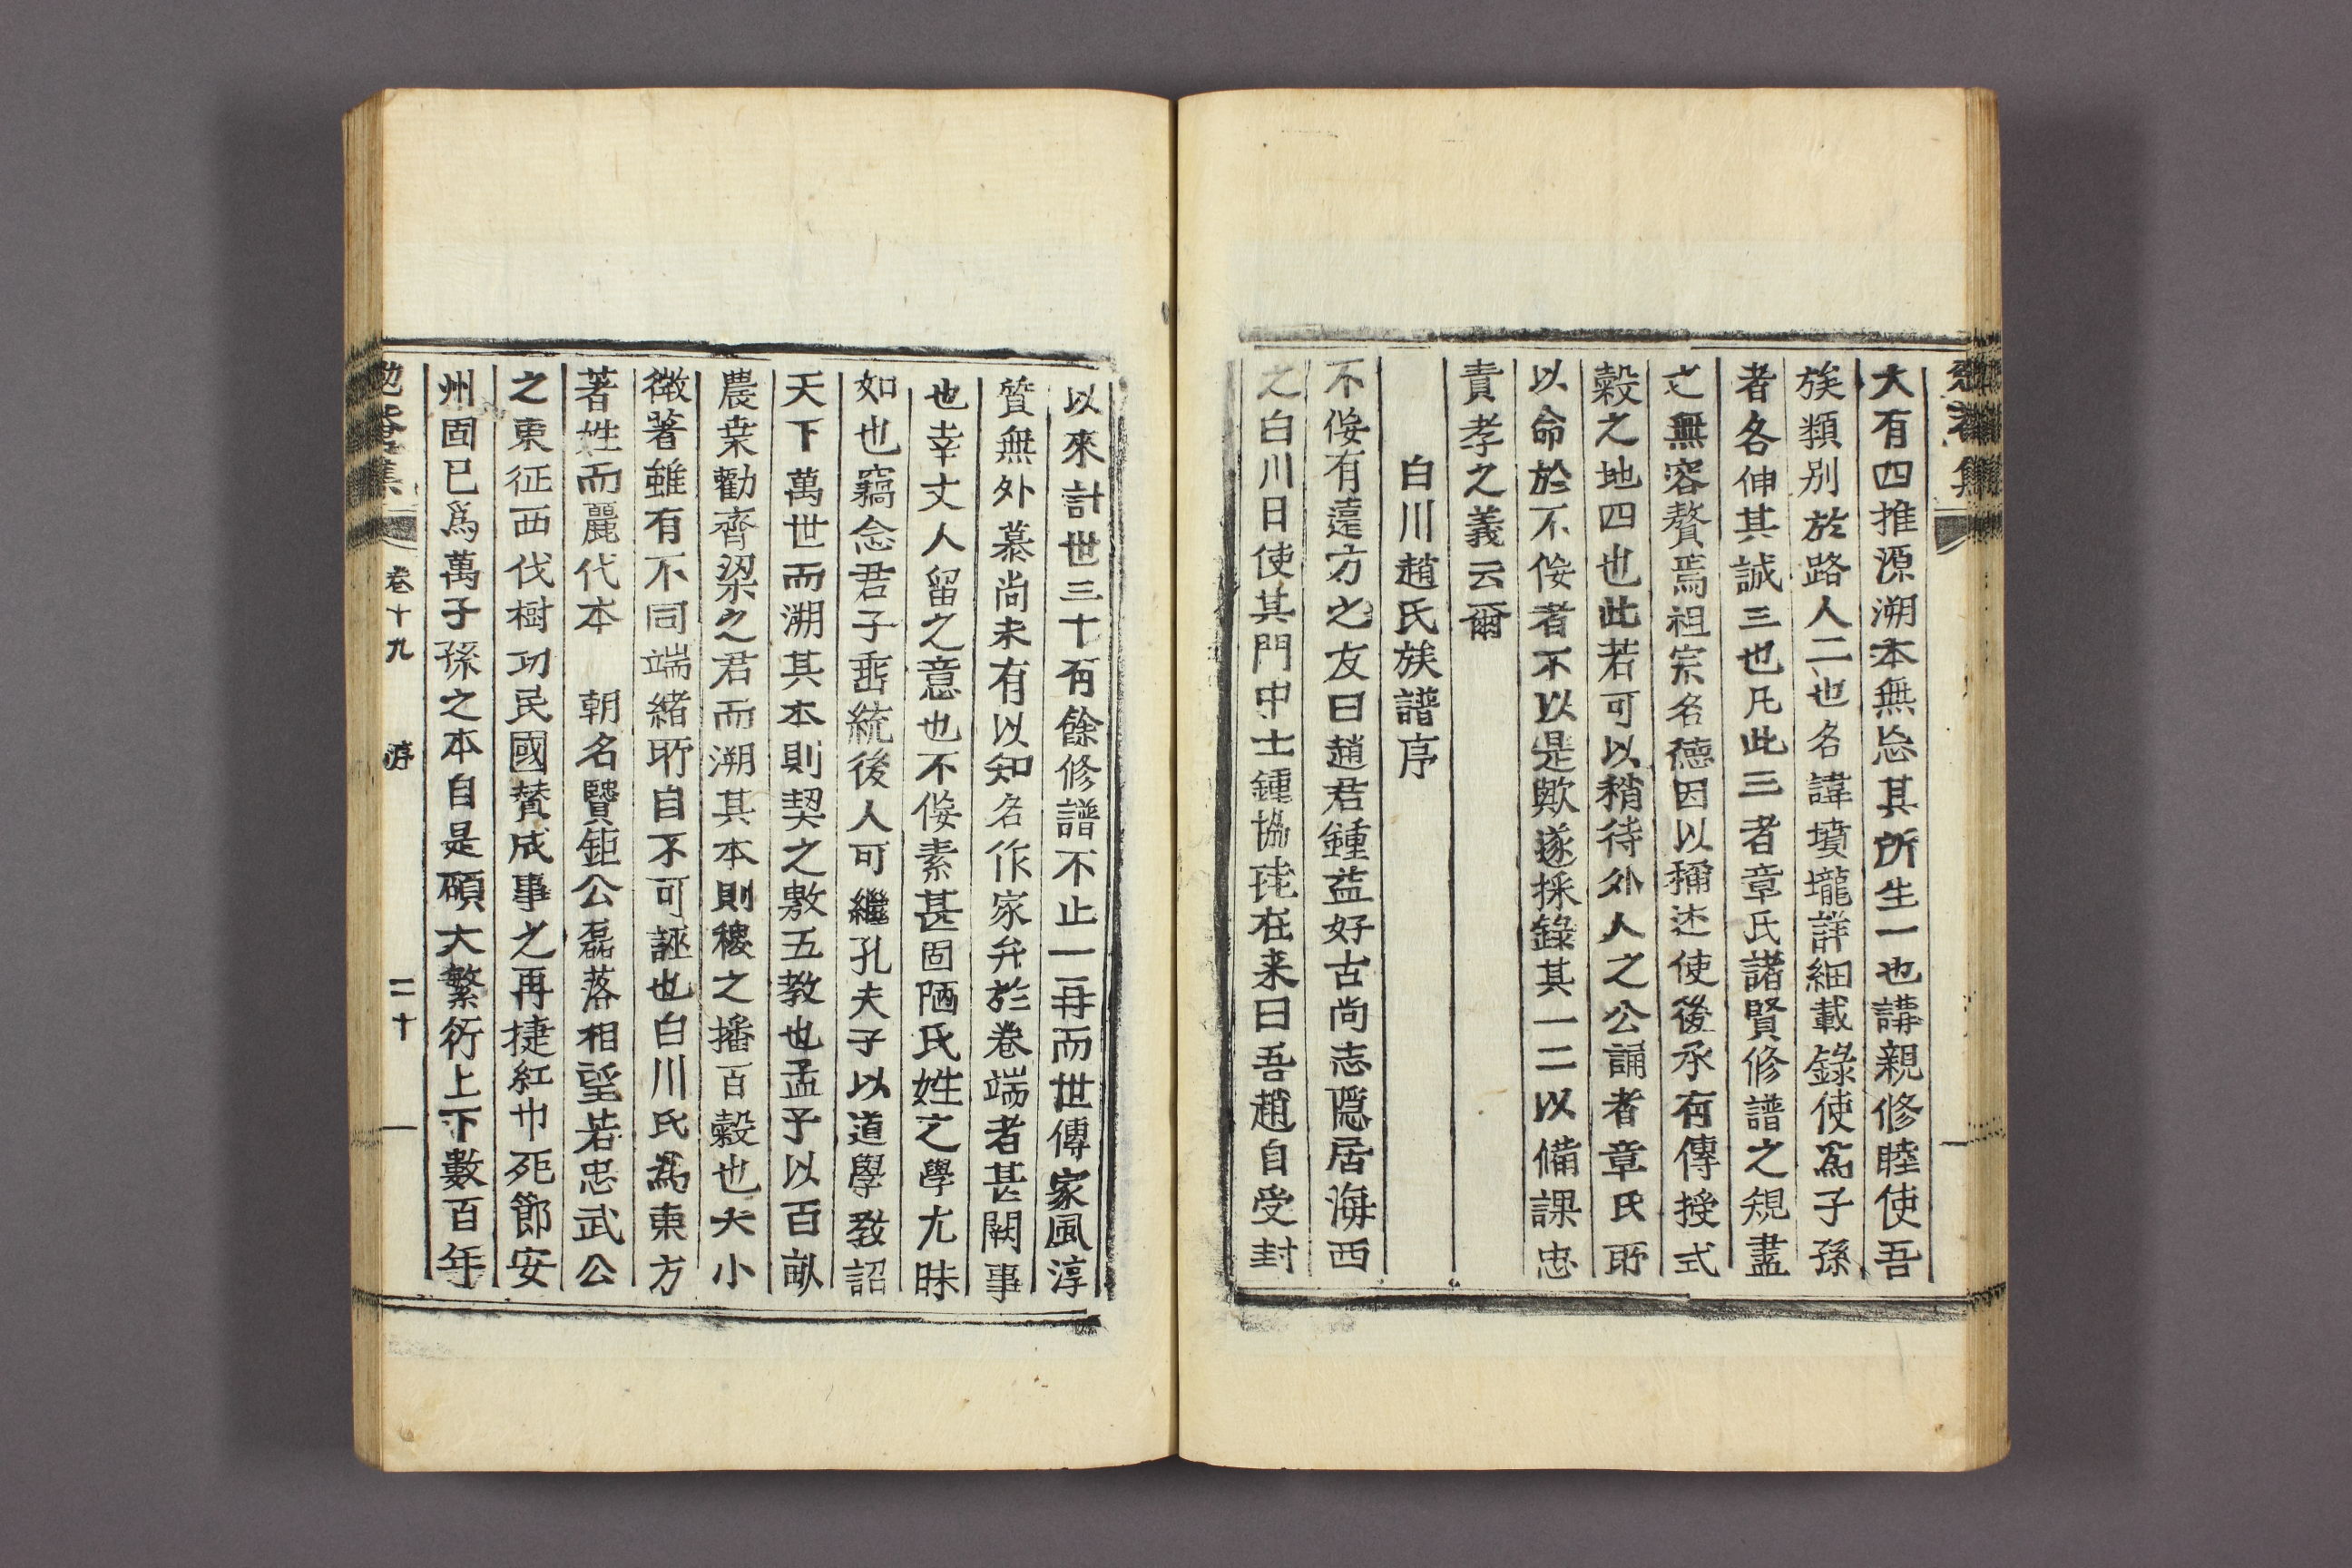 大有四推源溯本無忘其所生一也講親修睦使吾
族類别於路人二也名諱墳壠詳細載錄使爲子孫
者各伸其誠三也凡此三者章氏諸賢修譜之規盡
之無容贅焉祖宗名德因以稱述使後承有傳授式
穀之地四也此若可以稍待外人之公誦者章氏所
以命於不佞者不以是歟遂採錄其一二以備課忠
責孝之義云爾
白川趙氏族譜序
不佞有遠方之友曰趙君鍾益好古尚志隱居海西
之白川日使其門中士鍾協珗在来曰吾趙自受封
以來計世三十有餘修譜不止一再而世傳家風淳
質無外慕尚未有以知名作家弁於卷端者甚闕事
也幸丈人留之意也不佞素甚固陋氏姓之學尤昧
如也竊念君子垂統後人可繼孔夫子以道學敎詔
天下萬世而溯其本則契之敷五教也孟子以百畝
農桒勸齊梁之君而溯其本則稷之播百穀也大小
微著雖有不同端緒所自不可誣也白川氏爲東方
著姓而麗代本 朝名賢鉅公磊落相望若忠武公
之東征西伐樹功民國賛成事之再捷紅巾死節安
州固已爲萬子孫之本自是碩大繁衍上下數百年
勉菴集 卷十九 序 二十